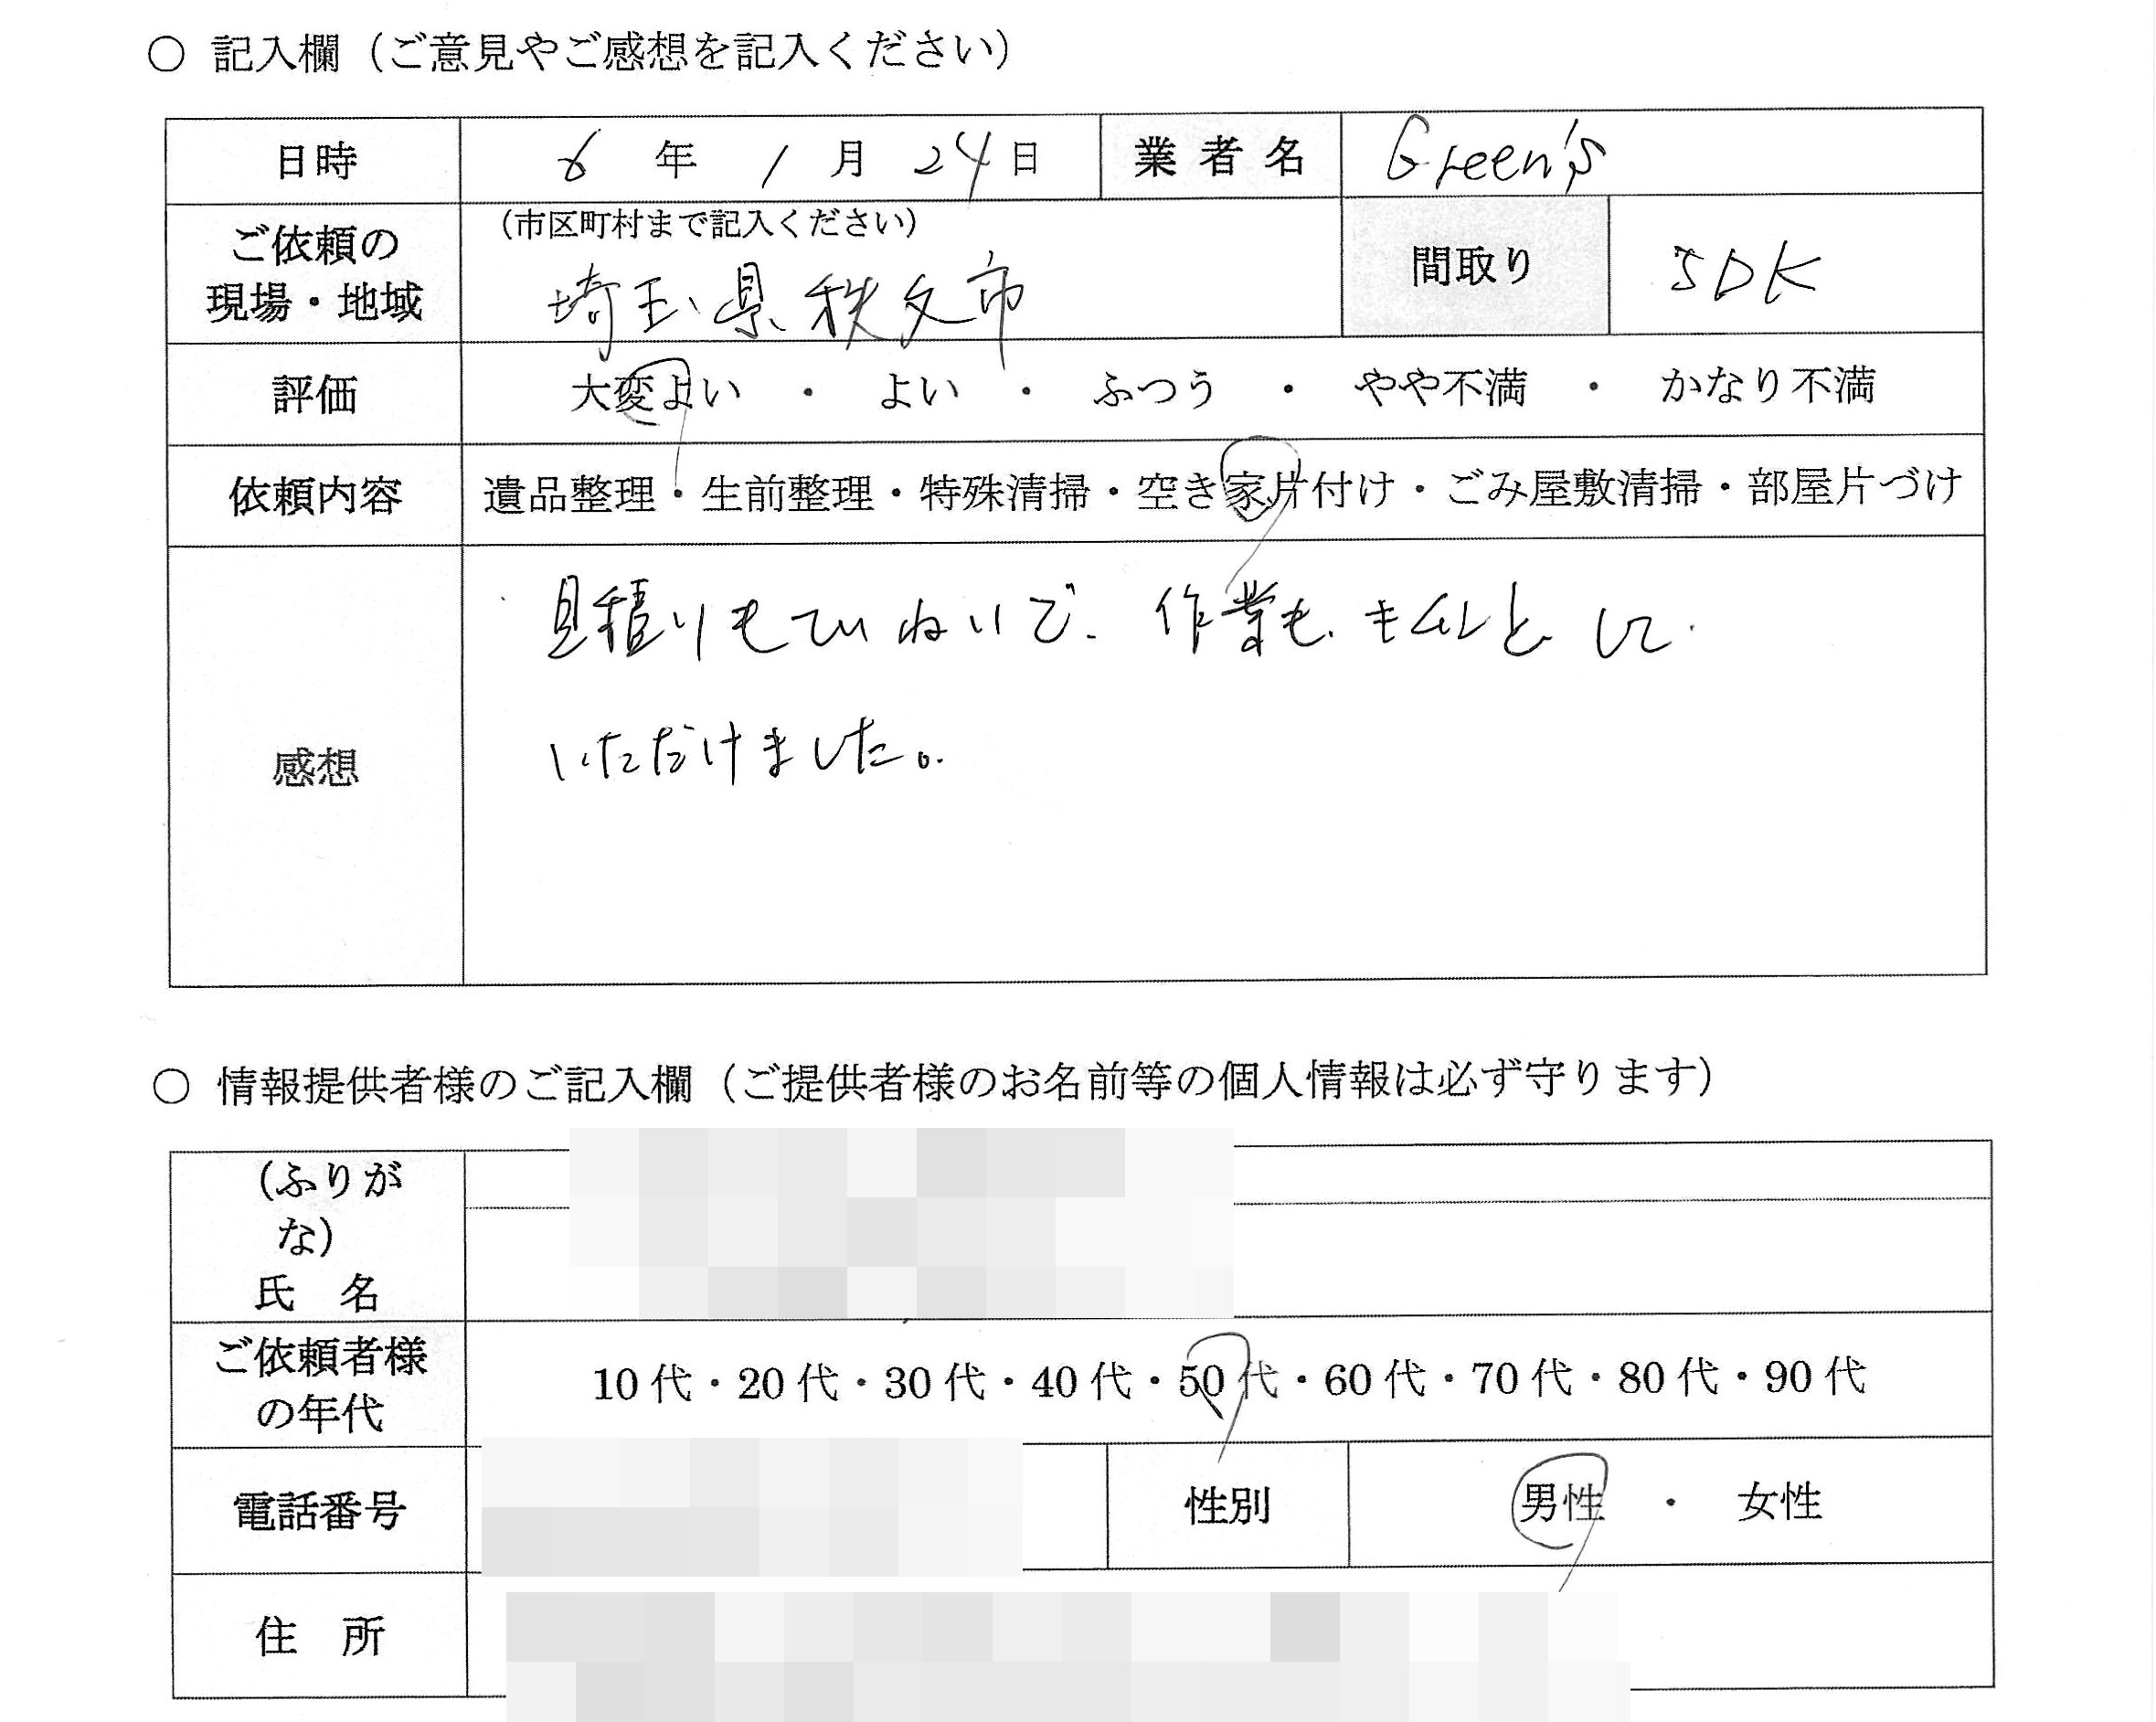 ○ 記入欄（ご意見やご感想を記入ください）
日時 6 年 1 月 24 日 業者名 Green's
ご依頼の
現場・地域
（市区町村まで記入ください）
埼玉県秩父市
間取り 5DK
評価 大変よい ・ よい ・ ふつう ・ やや不満 ・ かなり不満
依頼内容 遺品整理・生前整理・特殊清掃・空き家片付け・ごみ屋敷清掃・部屋片づけ
感想
見積りもていねいで、作業も、キチンと、して
いただけました。
○ 情報提供者様のご記入欄（ご提供者様のお名前等の個人情報は必ず守ります）
（ふりが
な）
氏 名
ご依頼者様
の年代
10代・20代・30代・40代・50代・60代・70代・80代・90代
電話番号 性別 男性 ・ 女性
住 所